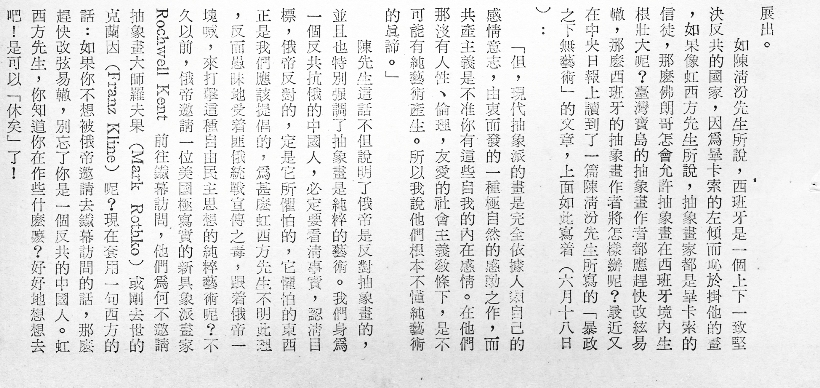 展出。
如陳清汾先生所說，西班牙是一個上下一致堅
決反共的國家，因爲畢卡索的左傾而恥於掛他的畫
，如果像虹西方先生所說，抽象畫家都是畢卡索的
信徒，那麽佛朗哥怎會允許抽象畫在西班牙境內生
根壯大呢？臺灣寶島的抽象畫作者都應趕快改絃易
轍，那麽西班牙的抽象畫作者將怎樣辦呢？最近又
在中央日報上讀到了一篇陳清汾先生所寫的「暴政
之下無藝術」的文章，上面如此寫着（六月十八日
）：
「但，現代抽象派的畫是完全依據人類自己的
感情意志，由衷而發的一種極自然的感動之作，而
共產主義是不准你有這些自我的內在感情。在他們
那沒有人性、倫理，友愛的社會主義敎條下，是不
可能有純藝術產生。所以我說他們根本不懂純藝術
的眞諦。」
陳先生這話不但說明了俄帝是反對抽象畫的，
並且也特別强調了抽象畫是純粹的藝術。我們身爲
一個反共抗俄的中國人，必定要看淸事實，認淸目
標，俄帝反對的，定是它所懼怕的，它懼怕的東西
正是我們應該提倡的，爲甚麽虹西方先生不明此理
，反而愚昧地受着匪俄統戰宣傳之毒，跟着俄帝一
塊喊，來打擊這種自由民主思想的純粹藝術呢？不
久以前，俄帝邀請一位美國極寫實的新具象派畫家
Rockwell Kent 前往鐵幕訪問，他們爲何不邀請
抽象畫大師羅夫果（Mark Rothko）或剛去世的
克蘭因（Franz Kline）呢？現在套用一句西方的
話：如果你不想被俄帝邀請去鐵幕訪問的話，那麽
趕快改弦易轍，別忘了你是一個反共的中國人。虹
西方先生，你知道你在作些什麽嚒？好好地想想去
吧！是可以「休矣」了！